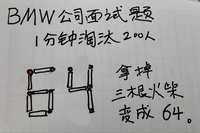 BMW公司面试题
1分钟淘汰200人
拿掉
三根火柴
变成 64。